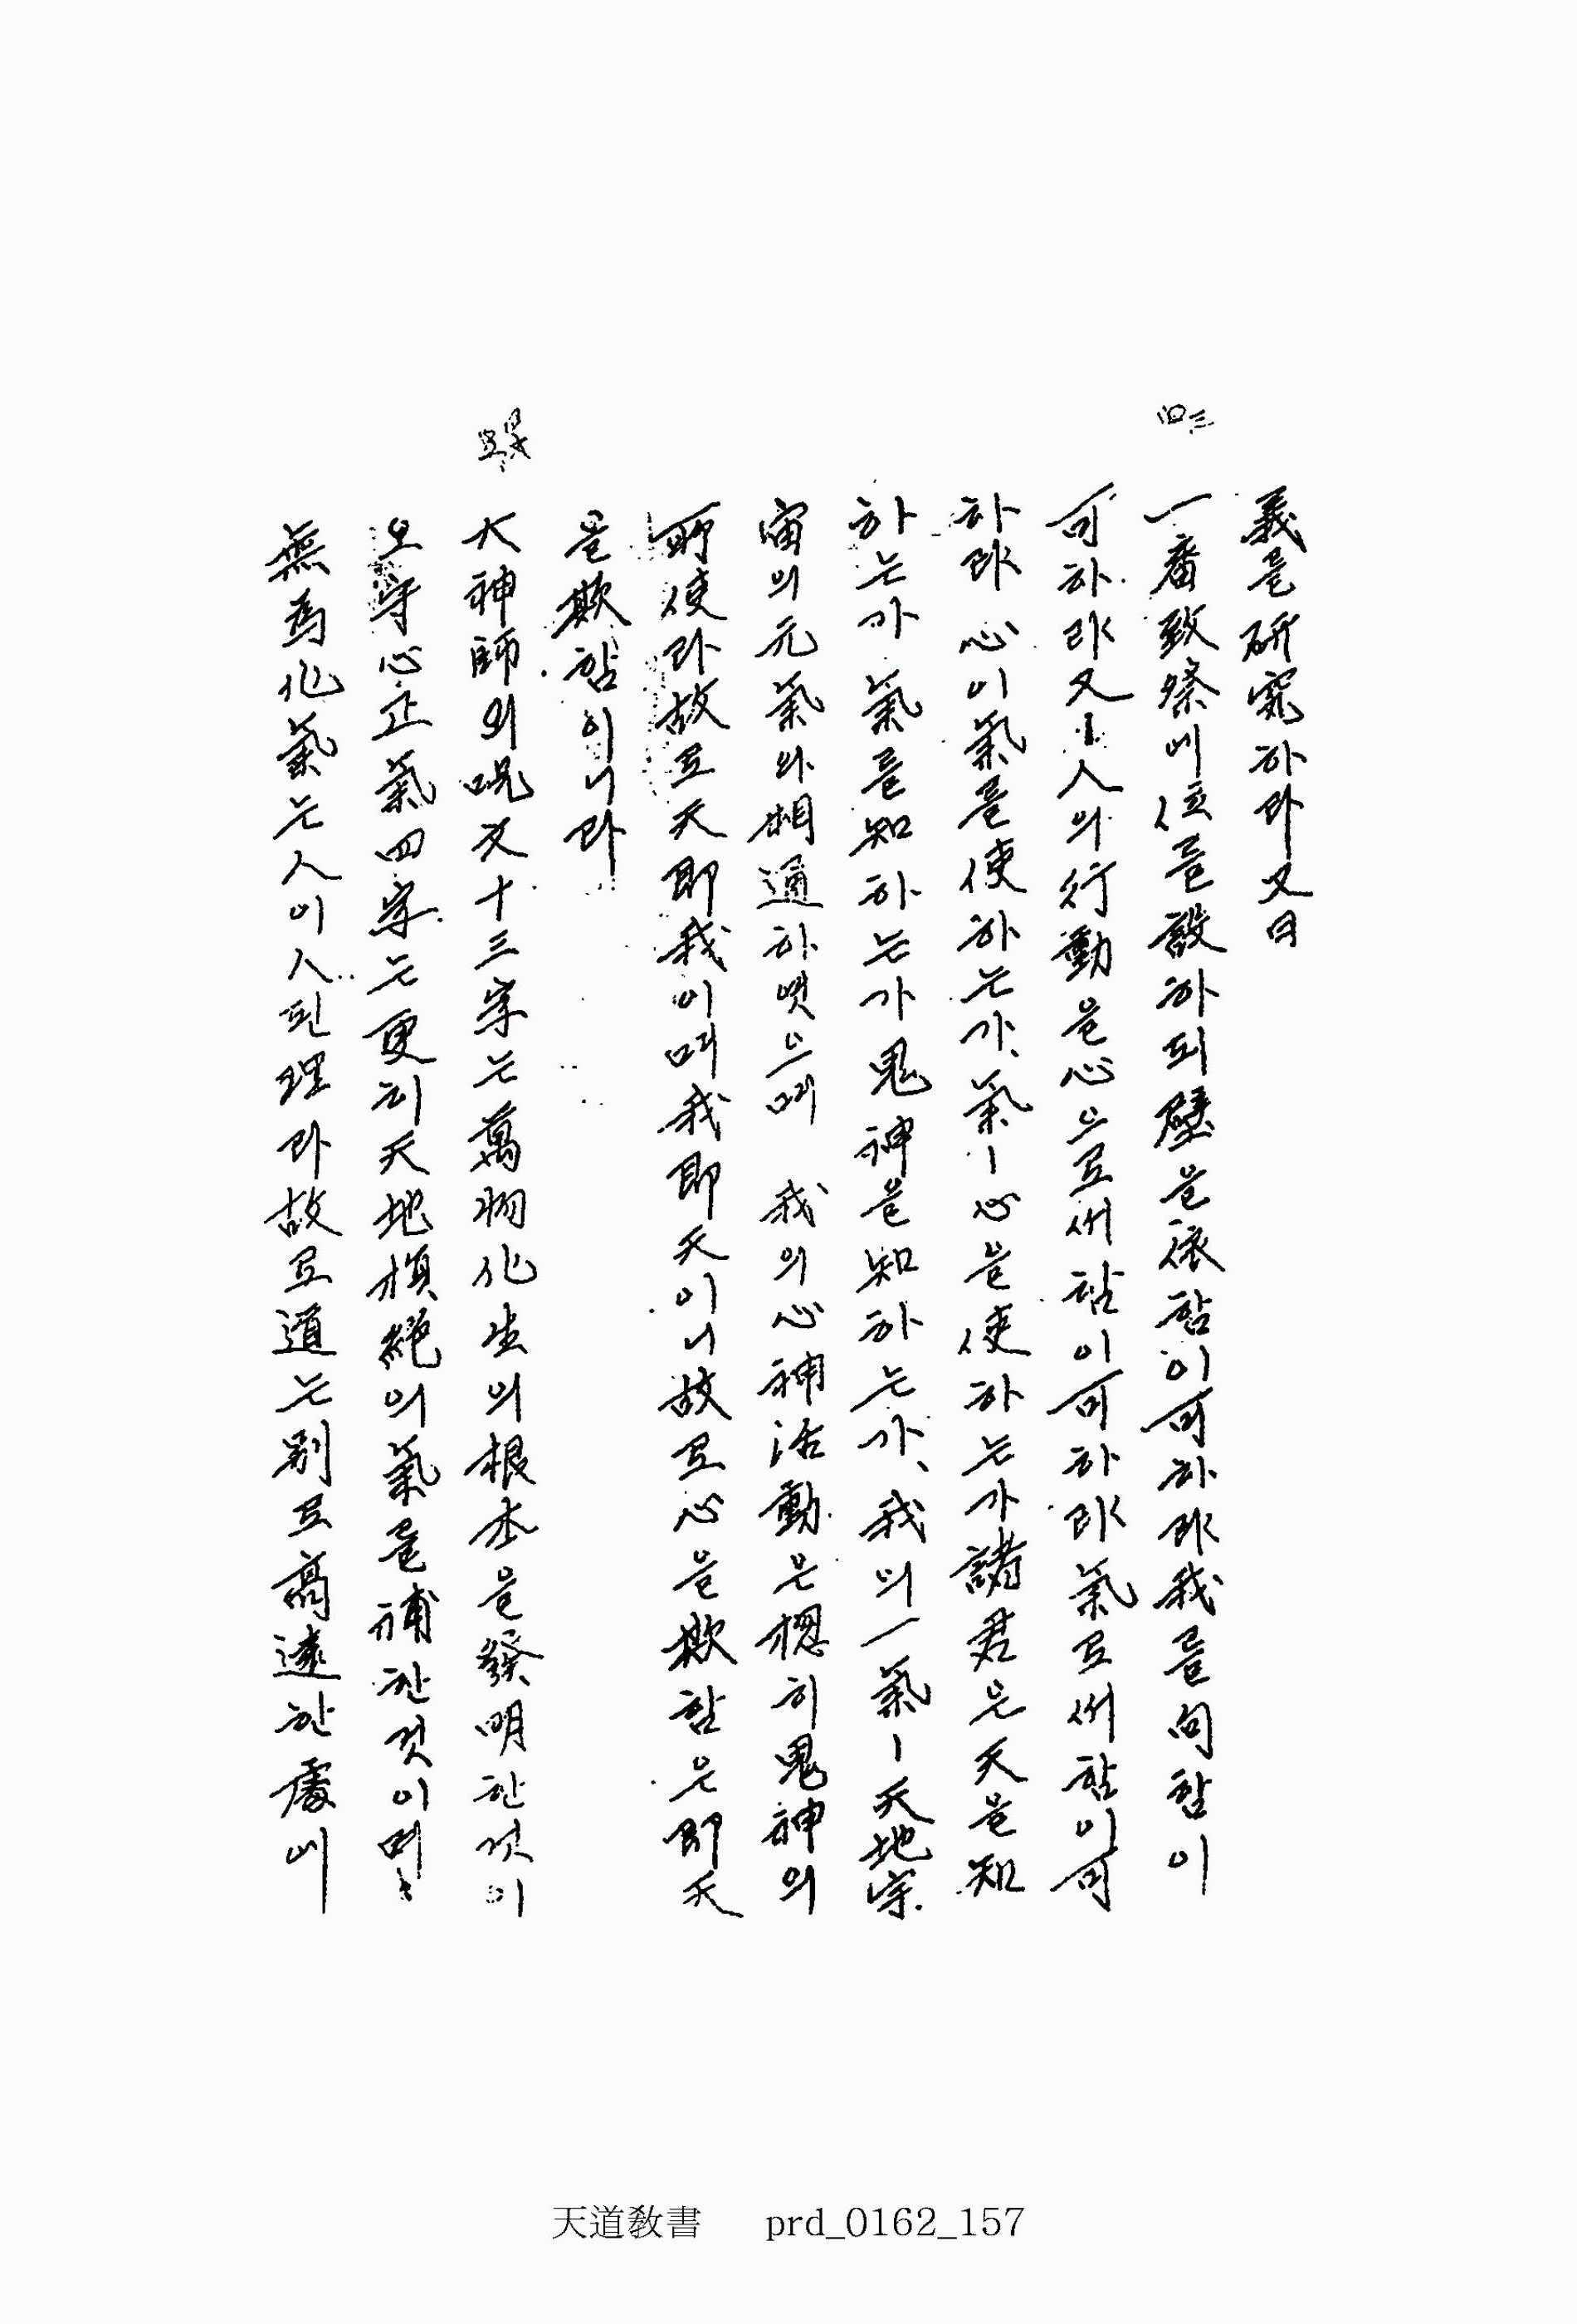 義를硏究하라又曰
四三
一番致祭에位를設하되壁을依함이可하랴我를向함이
可하랴又ㅣ人의行動을心으로써함이可하랴氣로써함이可
하랴 心이氣를使하는가、氣ㅣ心을使하는가諸君은天을知
하는가 氣를知하는가鬼神을知하는가、我의一氣ㅣ天地宇
宙의元氣와相通하엿으며 我의心神活動은總히鬼神의
所使라故로天卽我이며我卽天이니故로心을欺함은卽天
을欺함이니라
大神師의呪文十三字는萬物化生의根本을發明한것이
오守心正氣四字는更히天地損絶의氣를補한것이며
無爲化氣는人이人된理라故로道는別로高遠한處에
天道敎書 prd_0162_157